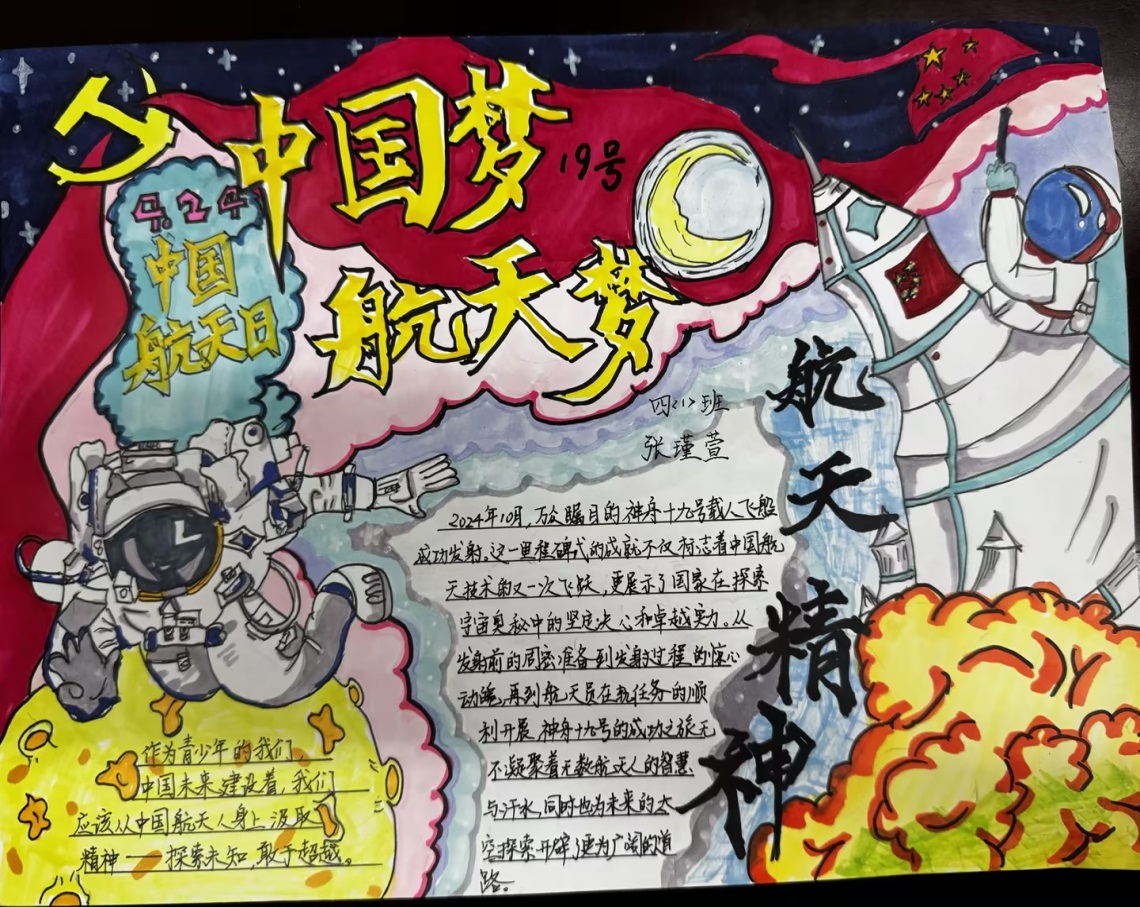 中国梦
19号
航天梦
4.24
中国
航天日
四(1)班
张瑾萱
航天精神
2024年10月，万众瞩目的神舟十九号载人飞船
成功发射。这一里程碑式的成就不仅标志着中国航
天技术的又一次飞跃，更展示了国家在探索
宇宙奥秘中的坚定决心和卓越实力。从
发射前的周密准备到发射过程的惊心
动魄，再到航天员在轨任务的顺
利开展，神舟十九号的成功之旅无
不凝聚着无数航天人的智慧
与汗水，同时也为未来的太
空探索开辟了更为广阔的道
路。
作为青少年的我们
中国未来建设着，我们
应该从中国航天人身上汲取
精神——探索未知，敢于超越。